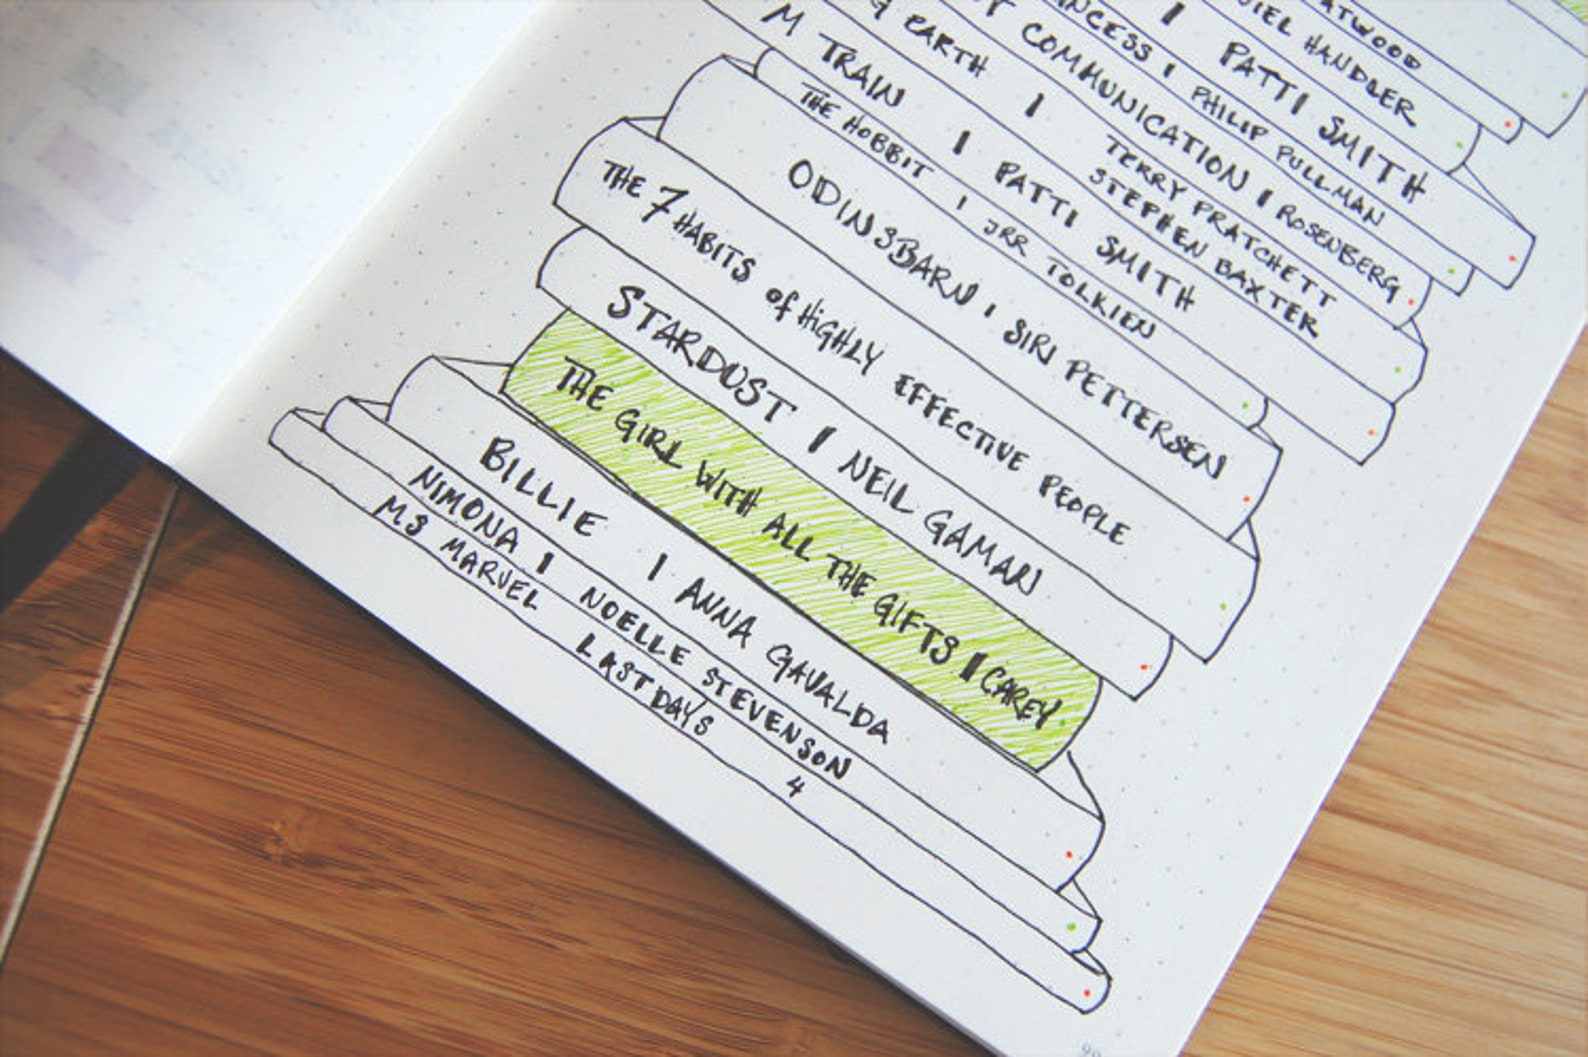 ATWOOD
IEL HANDLER
I PATTI SMITH
NCESS I PHILIP PULLMAN
T COMMUNICATION I ROSENBERG
G EARTH I TERRY PRATCHETT
STEPHEN BAXTER
M TRAIN I PATTI SMITH
THE HOBBIT I JRR TOLKIEN
ODINSBARN I SIRI PETTERSEN
THE 7 HABITS of HiGHLY EFFECTIVE PEOPLE
STARDUST I NEIL GAMAN
THE GIRL WITH ALL THE GIFTS I CAREY
BILLIE I ANNA GAVALDA
NIMONA I NOELLE STEVENSON
MS MARVEL LAST DAYS 4